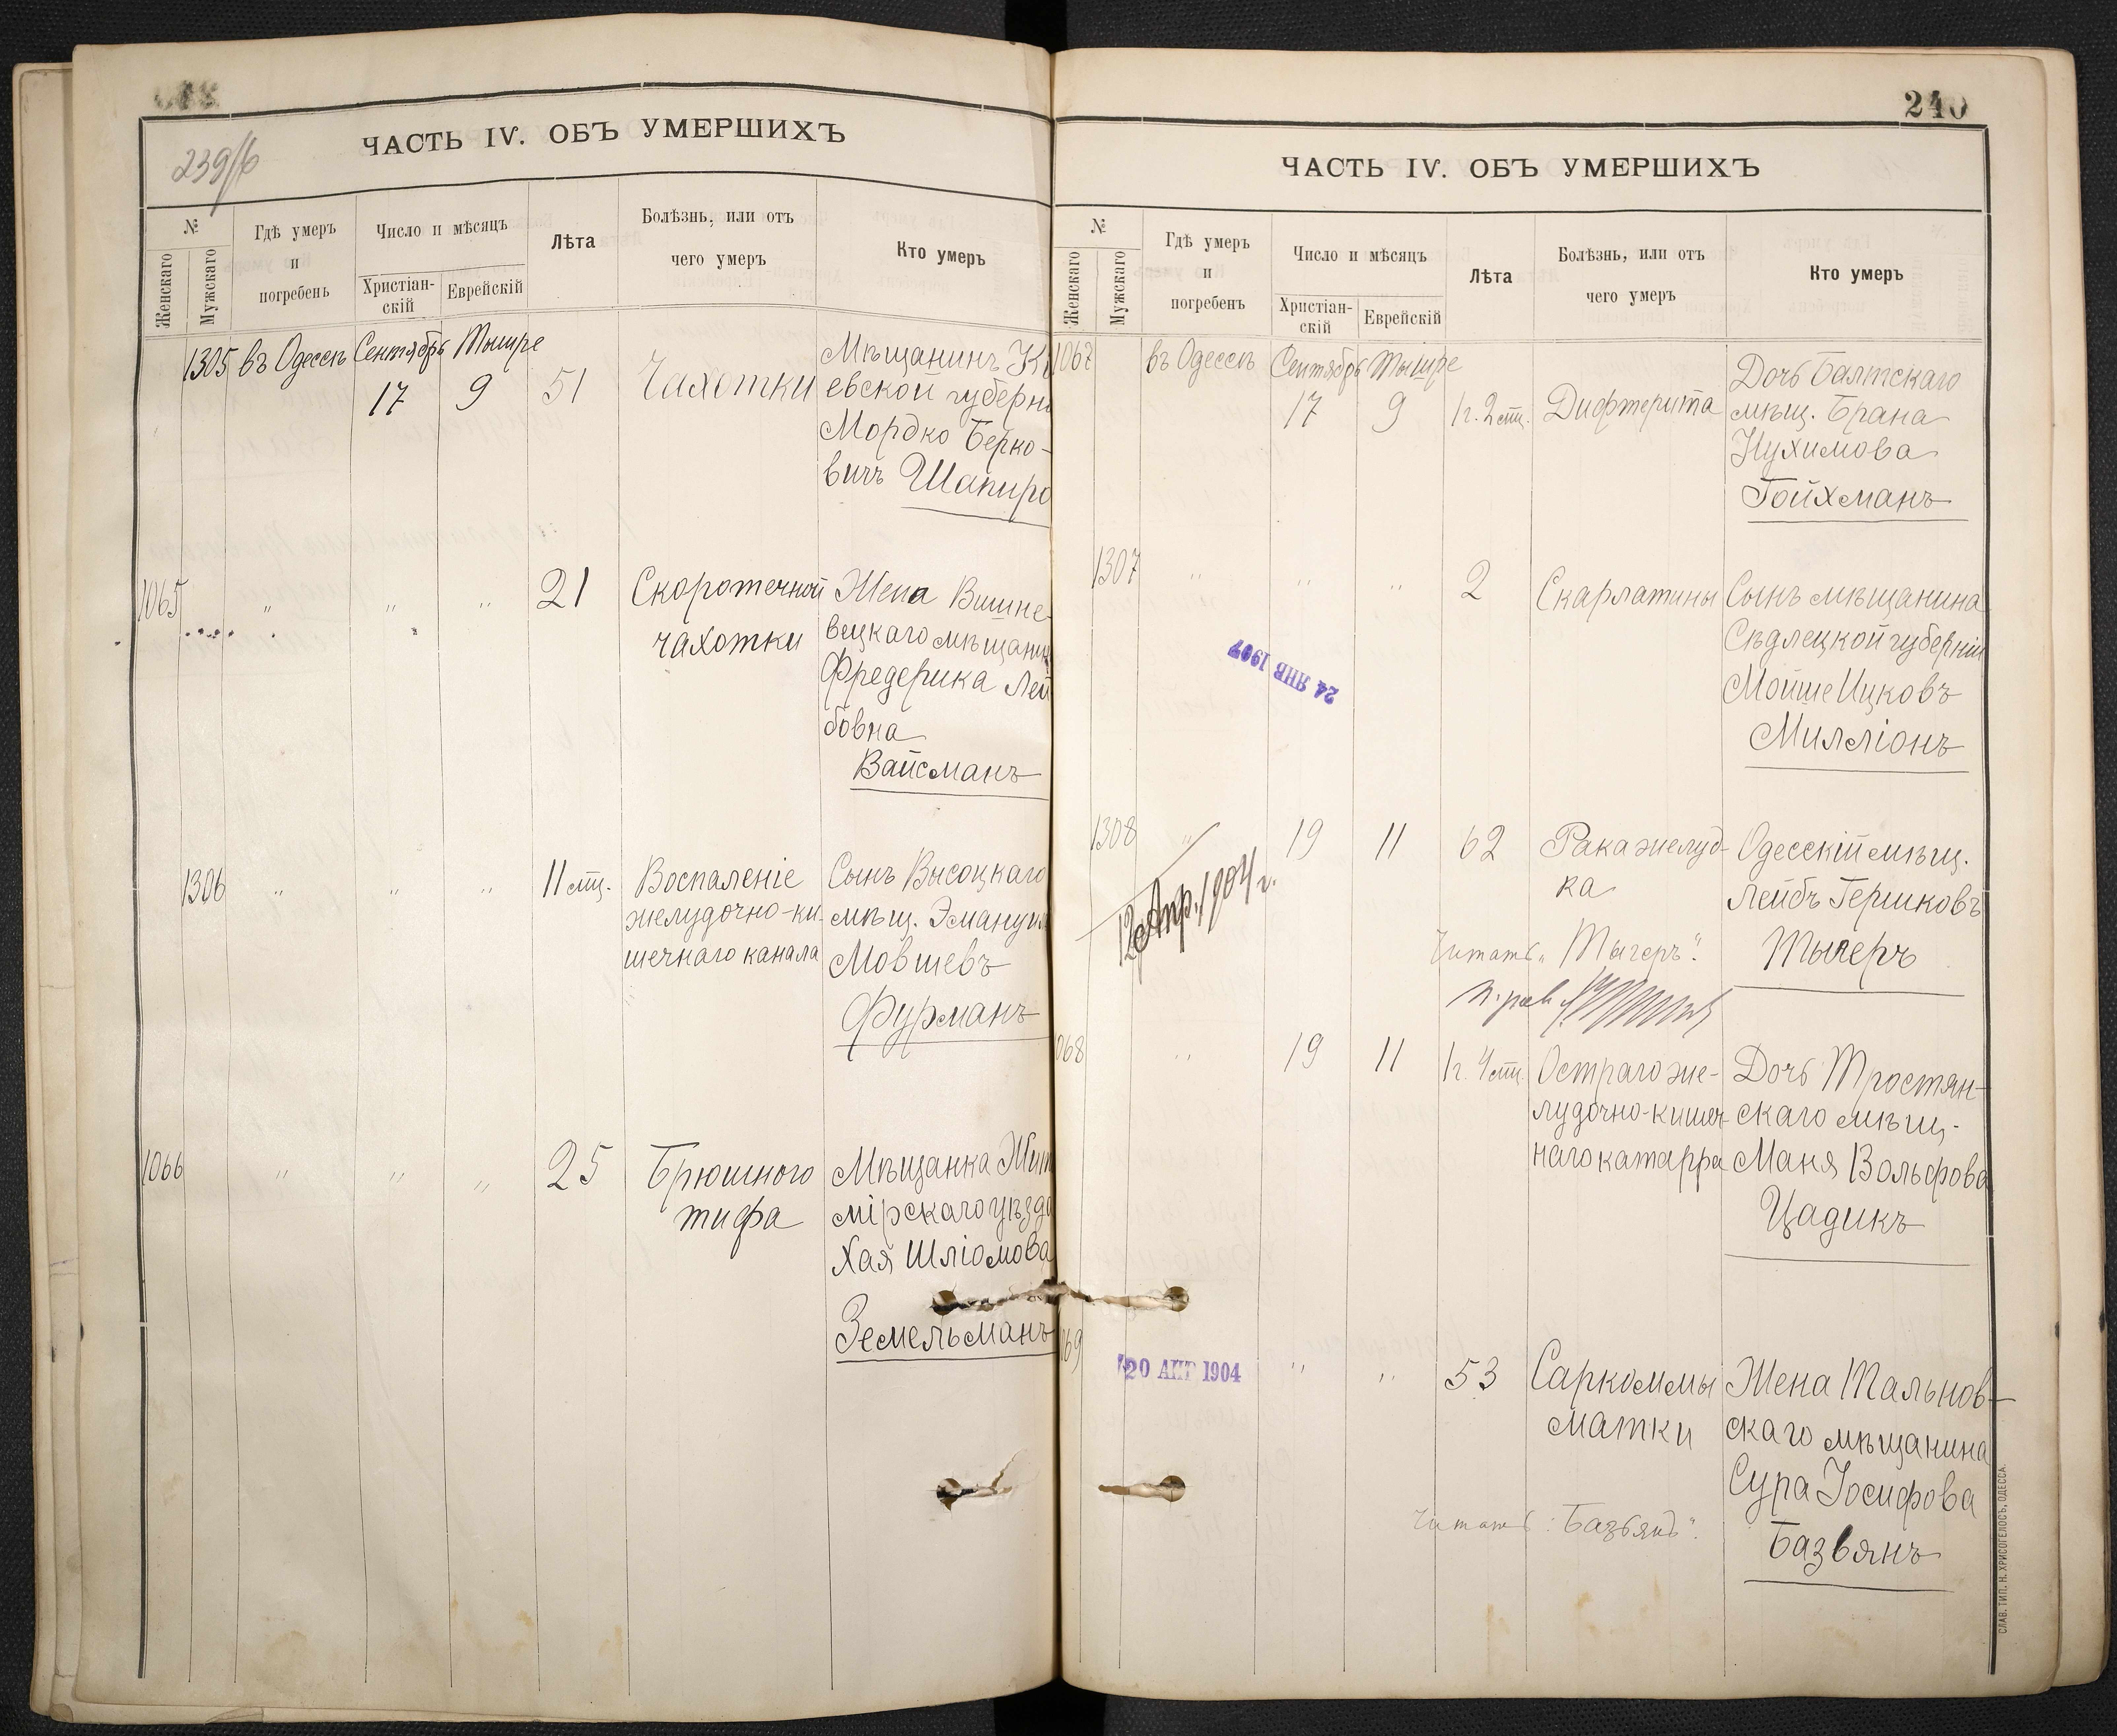 239/б
ЧАСТЬ IV. ОБЪ УМЕРШИХЪ
№
Женскаго
Мужскаго
Гдѣ умеръ
и
погребенъ
Число и мѣсяцъ
Христіан-
скій
Еврейскій
Лѣта
Болѣзнь, или отъ
чего умеръ
Кто умеръ
1305 въ Одессѣ Сентябрь Тышре
17 9 51 Чахотки
Мѣщанинъ Ки
евской губерні
Мордко Берко-
вичъ Шапиро
1065 " " " 21 Скоротечной
чахотки
Жена Вишне-
вецкаго мѣщанин
Фредерика Лей
бовна
Вайсманъ
1306 " " " 11 мѣц. Воспаленіе
желудочно-ки-
шечнаго канала
Сынъ Высоцкаго
мѣщ. Эмануил
Мовшевъ
Фурманъ
1066 " " " 25 Брюшного
тифа
Мѣщанка Жит
мірскаго уѣзда
Хая Шліомова
Земельманъ
240
ЧАСТЬ IV. ОБЪ УМЕРШИХЪ
№
Женскаго
Мужскаго
Гдѣ умеръ
и
погребенъ
Число и мѣсяцъ
Христіан-
скій
Еврейскій
Лѣта
Болѣзнь, или отъ
чего умеръ
Кто умеръ
1067 въ Одессѣ Сентябрь Тышре
17 9 1г. 2 мѣц. Дифтерита
Дочь Балтскаго
мѣщ. Брана
Нухимова
Гойхманъ
1307 " " " 2 Скарлатины
Сынъ мѣщанина
Сѣдлецкой губерніи
Мойше Ицковъ
Милліонъ
24 ЯНВ 1907
1308 " 19 11 62 Рака желуд-
ка
Одесскій мѣщ.
Лейбъ Гершковъ
Тычеръ
12 Апр. 1904 г.
Читать „Тыгеръ".
068 " 19 11 1г. 4 мѣц. Остраго же-
лудочно-кишеч-
наго катарра
Дочь Тростян-
скаго мѣщ.
Маня Вольфова
Цадикъ
69 " " 53 Саркоммы
матки
20 АПР 1904
Жена Тальнов-
скаго мѣщанина
Сура Іосифова
Базвянъ
Читать: Базьянъ".
СЛАВ. ТИП. Н. ХРИСОГЕЛОСЪ, ОДЕССА.